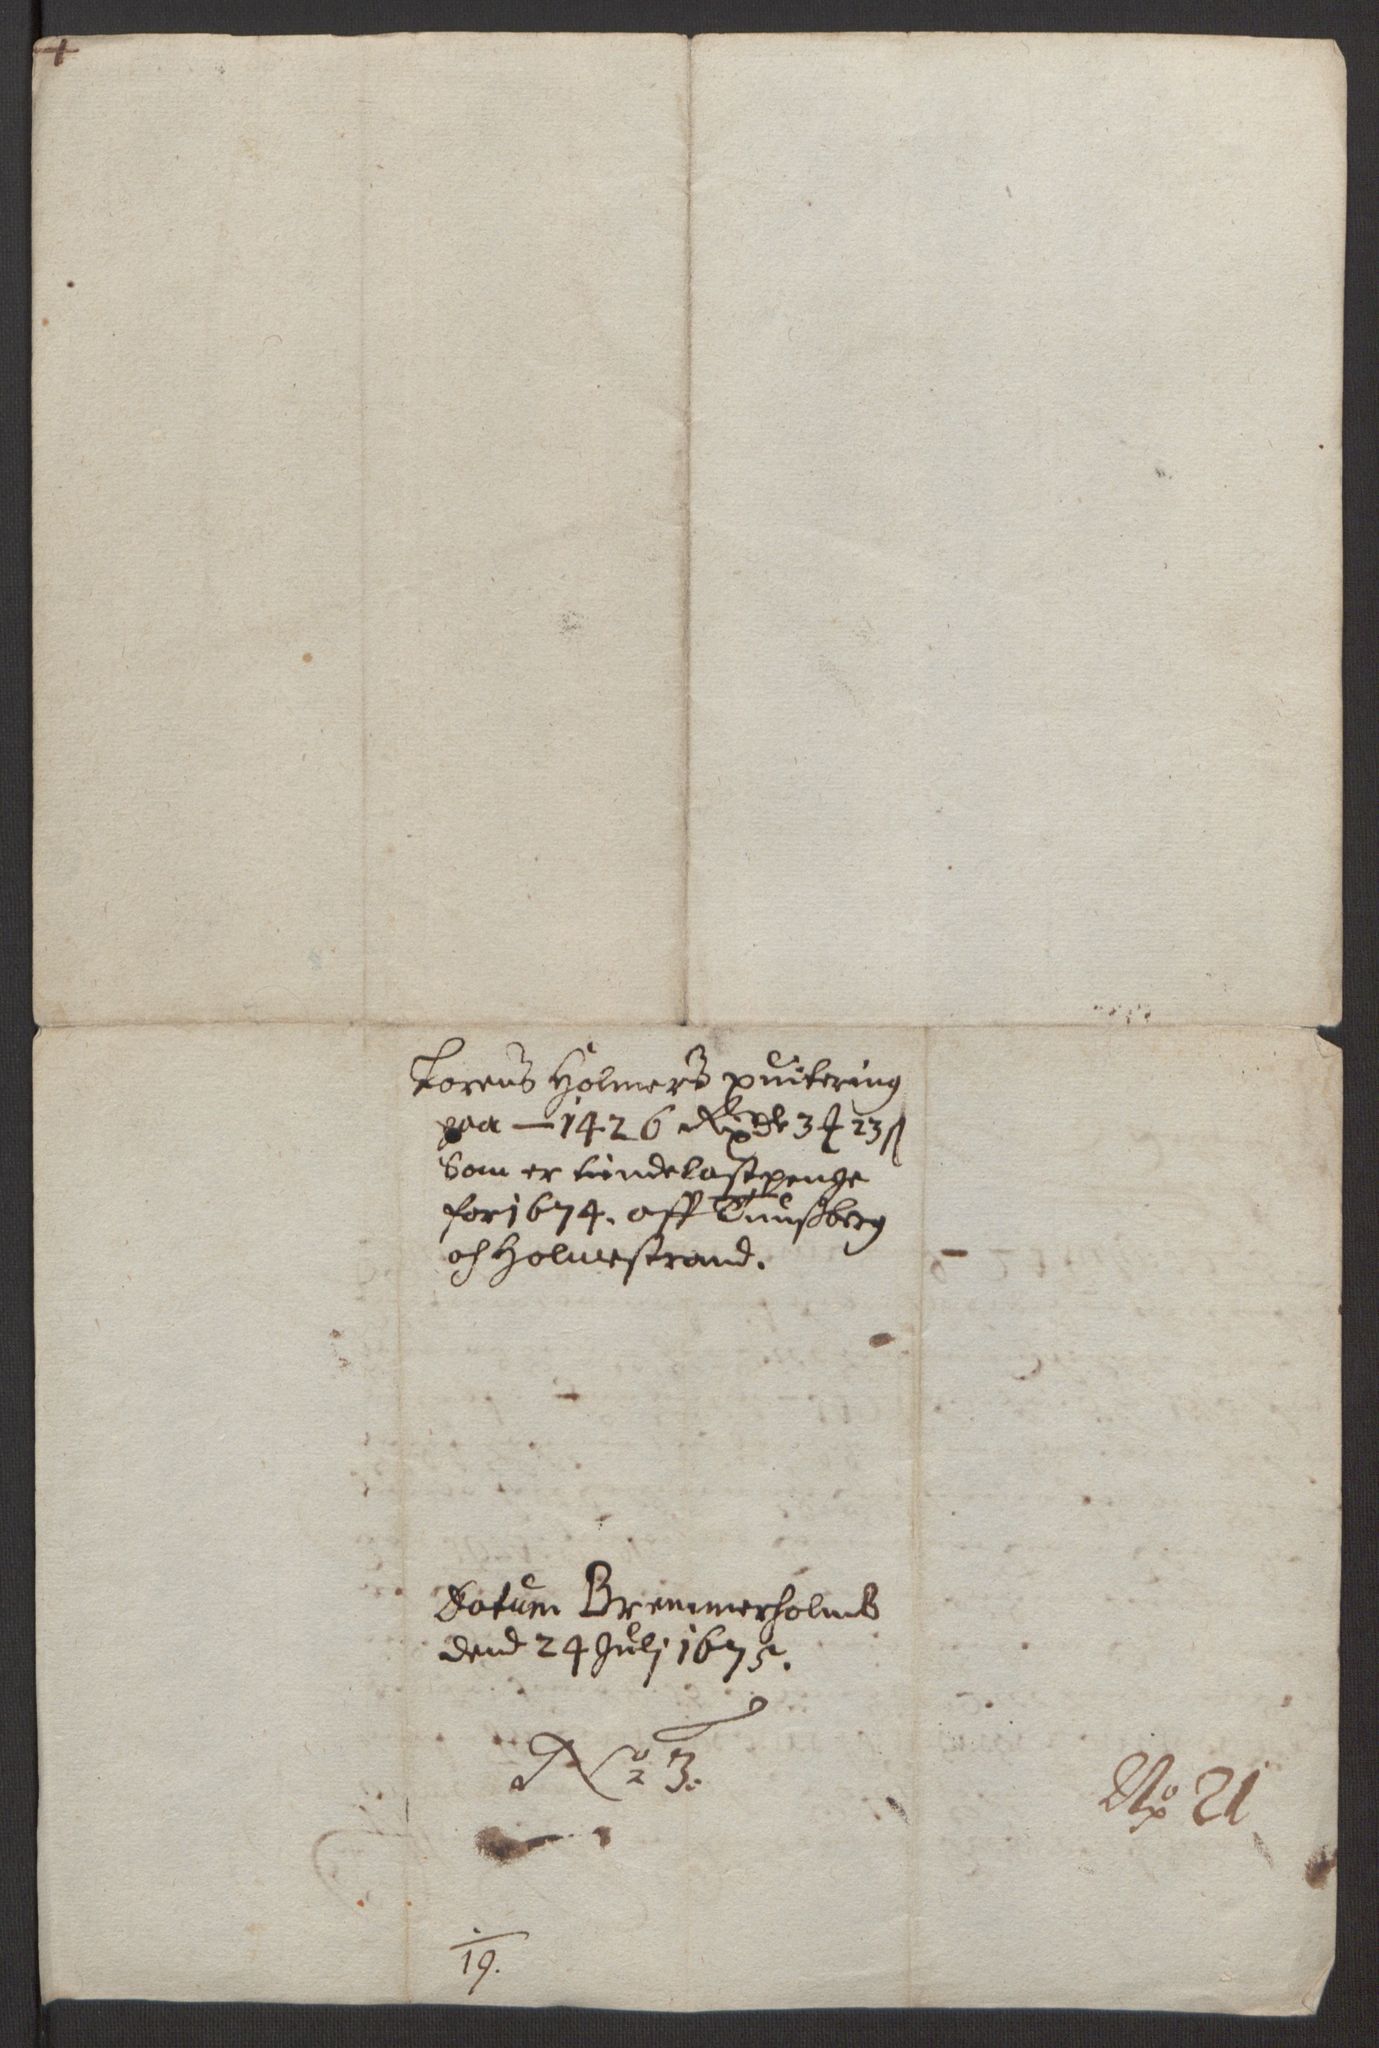 Lorens Holmers quitering
paa — 1426 Rixdr 3 ƶ 23 ß
Som er tiendelastpenge
for 1674. aff Tunßberg
och Holmestrand.
Datum Bremmerholmb
dend 24 Julj 1675.
No 3.
No 21
19.